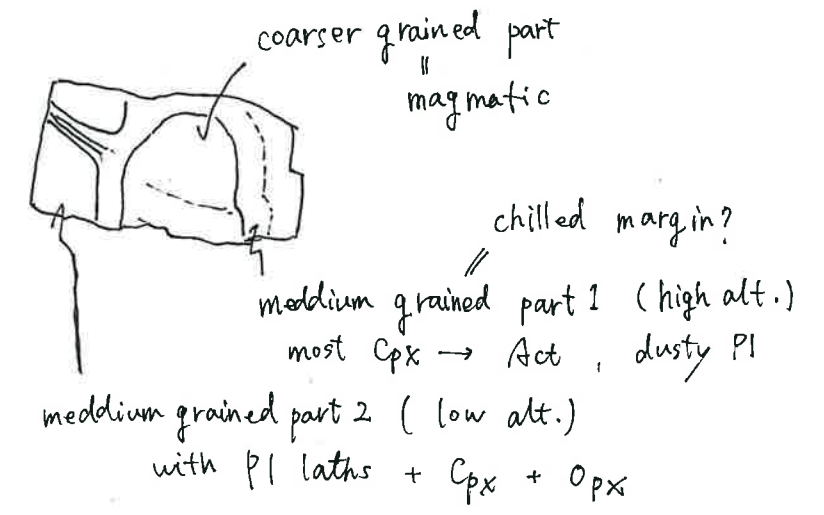 coarser grained part
||
magmatic
chilled margin?
//
meddium grained part 1 (high alt.)
most Cpx → Act, dusty Pl
meddium grained part 2 (low alt.)
with Pl laths + Cpx + Opx